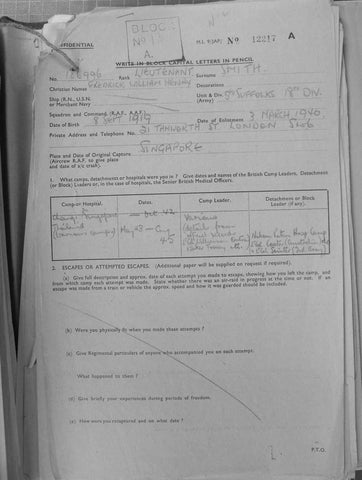 BLOCK
No
A.
CONFIDENTIAL
M.I. 9/JAP/ No 12217 A
WRITE IN BLOCK CAPITAL LETTERS IN PENCIL
No. Rank LIEUTENANT Surname SMITH
Christian Names FREDRICK WILLIAM Decorations
Ship (R.N., U.S.N. or Merchant Navy Unit & Div. (Army) 5th SUFFOLKS 18th DIV.
Squadron and Command (R.A.F., A.A.F.)
Date of Birth 8 1919 Date of Enlistment 3 MARCH 1940,
Private Address and Telephone No. 21 TAMWORTH ST. LONDON SW6
Place and Date of Original Capture SINGAPORE
(Aircrew R.A.F. to give place
and date of a/c crash).
1. What camps, detachments or hospitals were you in ? Give dates and names of the British Camp Leaders, Detachment
(or Block) Leaders or, in case of the hospitals, the Senior British Medical Officers.
Camp or Hospital. Dates. Camp Leader. Detachment or Block Leader (if any).
Changi Singapore — Oct 42 Various
Thailand
(various camps) 43 — Aug 45
2. ESCAPES OR ATTEMPTED ESCAPES. (Additional paper will be supplied on request if required).
(a) Give full description and approx. date of each attempt you made to escape, showing how you left the camp, and
from which camp each attempt was made. State whether there was an air-raid in progress at the time or not. If an
escape was made from a train or vehicle the approx. speed and how it was guarded should be included.
(b) Were you physically fit when you made these attempts ?
(c) Give Regimental particulars of anyone who accompanied you on each attempt.
What happened to them ?
(d) Give briefly your experiences during periods of freedom.
(e) How were you recaptured and on what date ?
P.T.O.